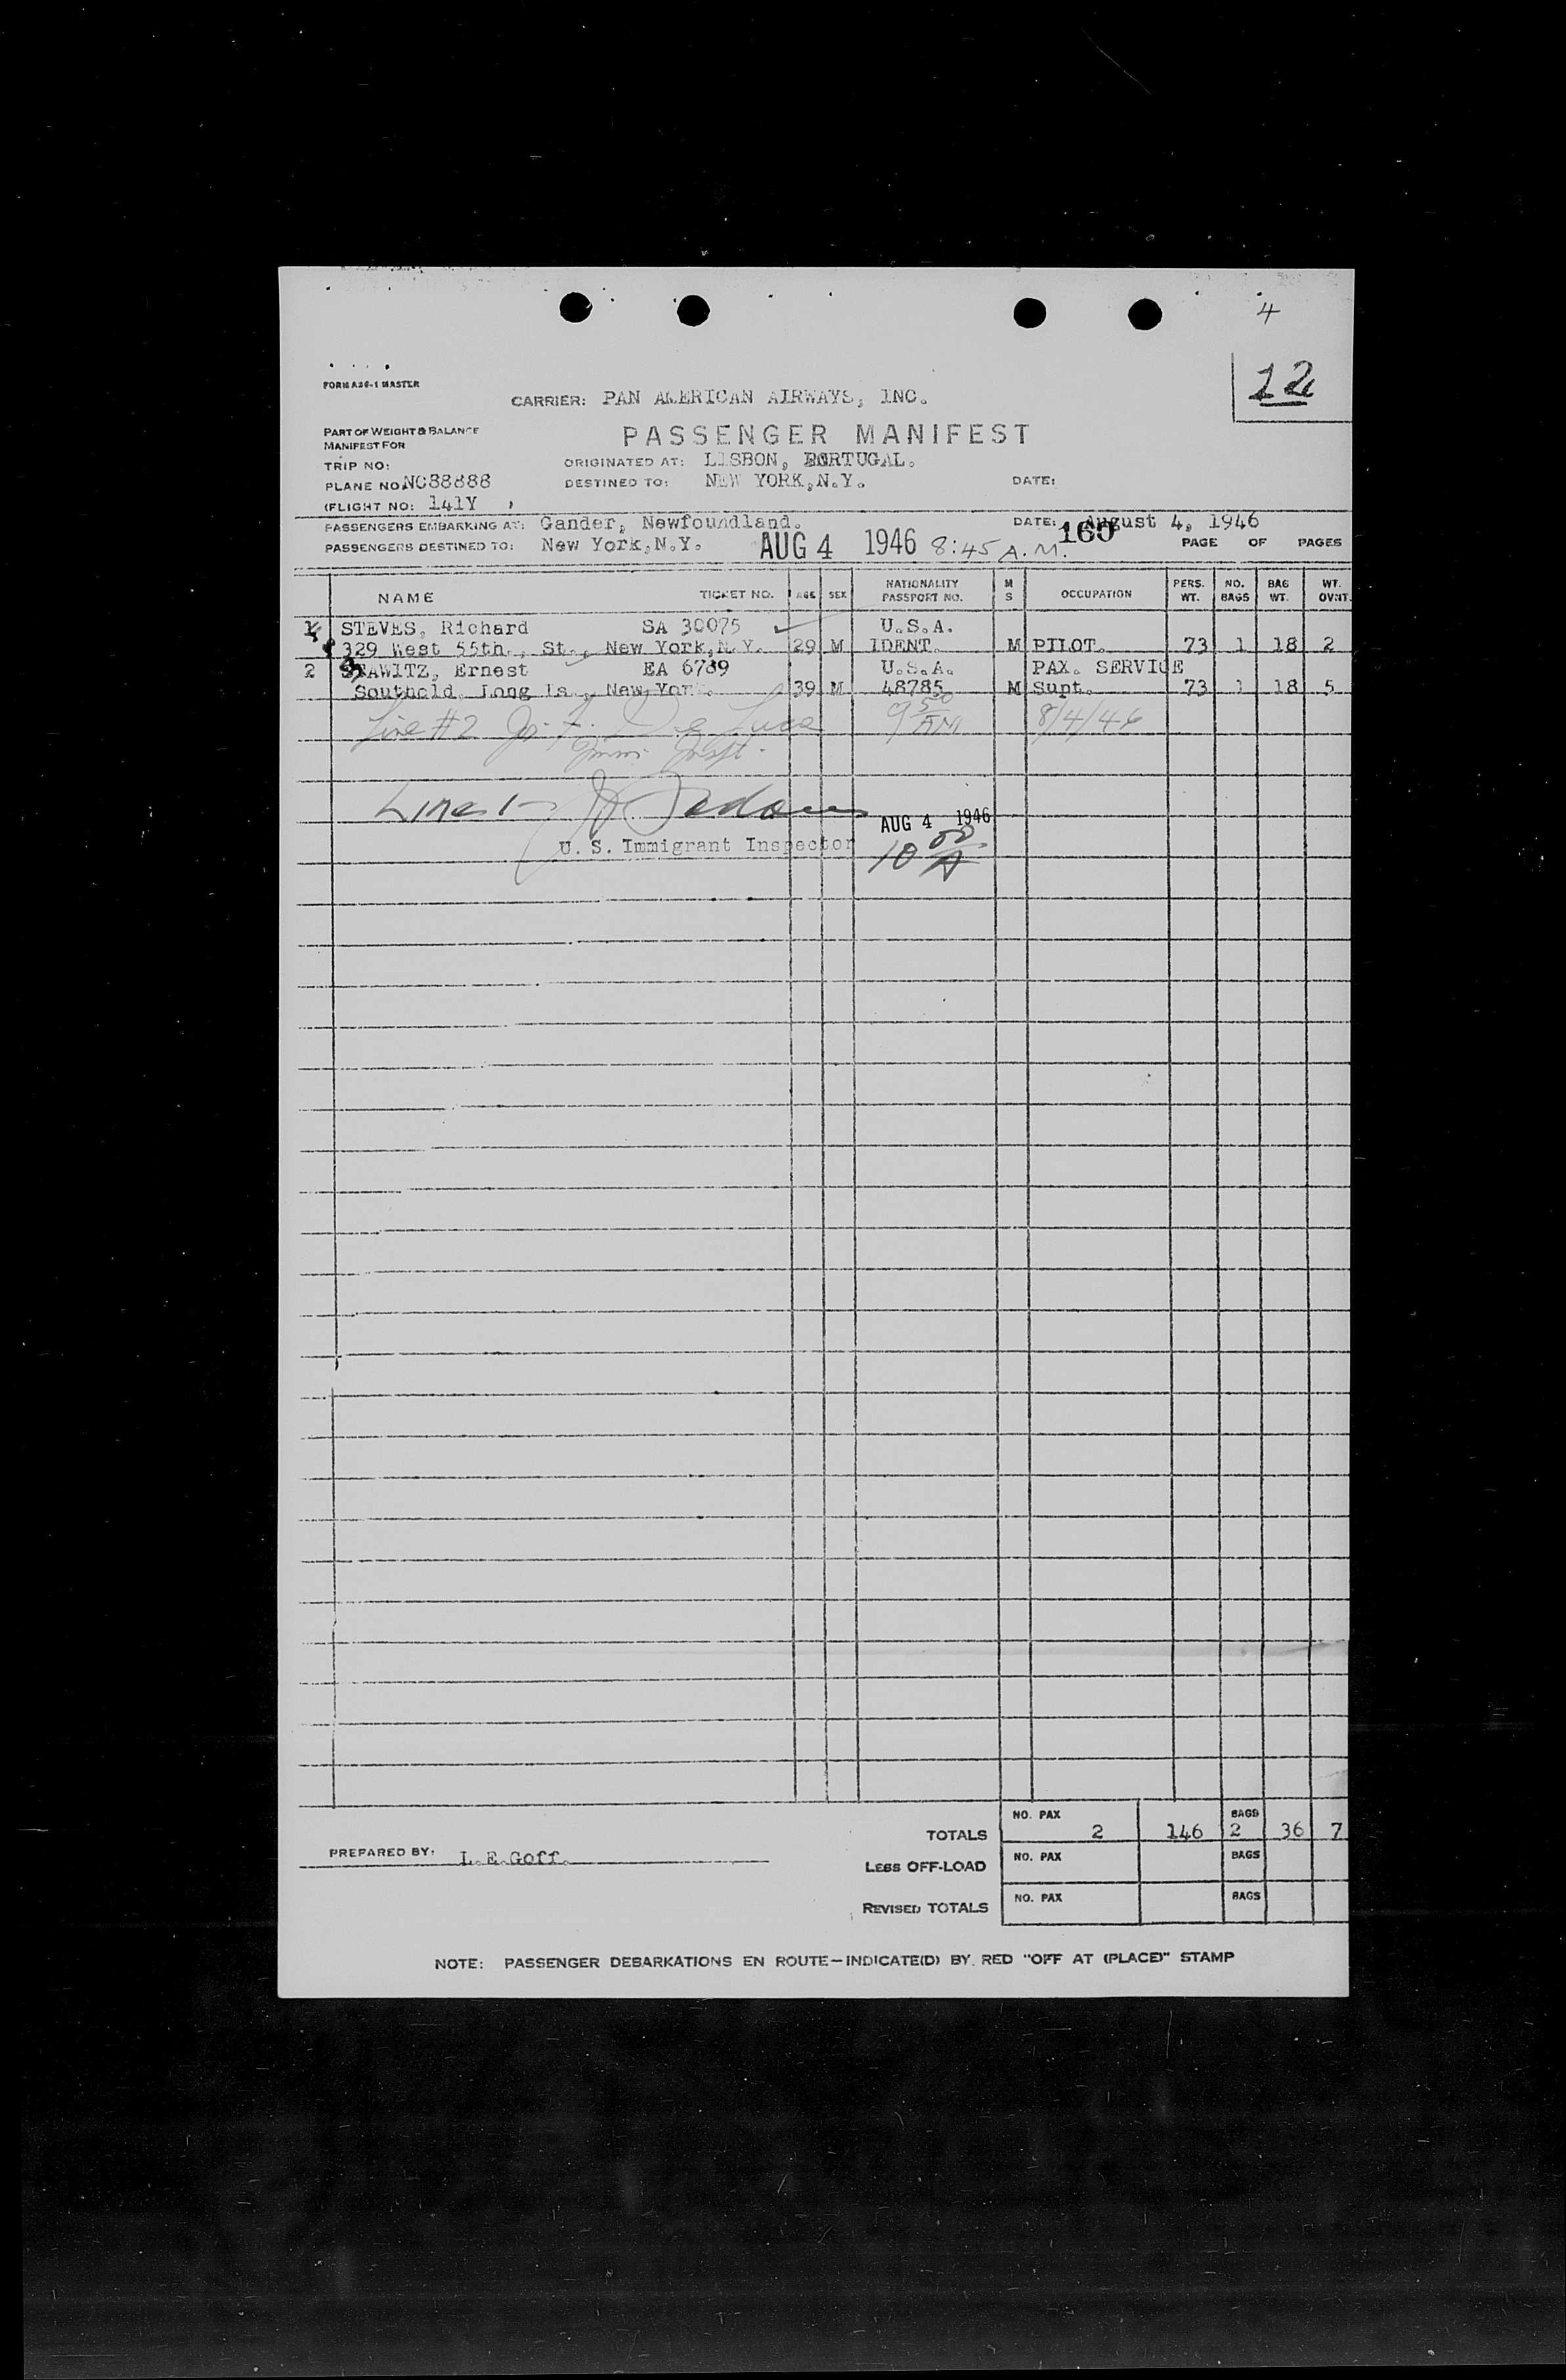 4
12
FORM A36-1 MASTER
CARRIER: PAN AMERICAN AIRWAYS, INC.
PART OF WEIGHT & BALANCE
MANIFEST FOR
PASSENGER MANIFEST
TRIP NO:
ORIGINATED AT: LISBON, PORTUGAL.
PLANE NO. NC88888
DESTINED TO: NEW YORK,N.Y.
DATE:
(FLIGHT NO: 141Y
PASSENGERS EMBARKING AT: Gander, Newfoundland.
DATE: August 4, 1946
160
PASSENGERS DESTINED TO: New York,N.Y.
AUG 4 1946 8:45 A.M.
PAGE OF PAGES
NAME TICKET NO. AGE SEX NATIONALITY PASSPORT NO. M S OCCUPATION PERS. WT. NO. BAGS BAG WT. WT. OVNT.
1 STEVES, Richard SA 30075 U.S.A.
329 West 55th., St., New York,N.Y. 29 M IDENT. M PILOT. 73 1 18 2
2 STAWITZ, Ernest EA 6789 U.S.A. PAX. SERVICE
Southold, Long Is., New York. 39 M 48785 M Supt. 73 1 18 5
Line #2 De Luca 9 50 AM 8/4/46
Imm. Inspt.
Line 1-
AUG 4 1946
U. S. Immigrant Inspector
10 00 A
TOTALS NO. PAX 2 146 BAGS 2 36 7
PREPARED BY: L.E.Goff.
LESS OFF-LOAD NO. PAX BAGS
REVISED TOTALS NO. PAX BAGS
NOTE: PASSENGER DEBARKATIONS EN ROUTE—INDICATE(D) BY RED "OFF AT (PLACE)" STAMP